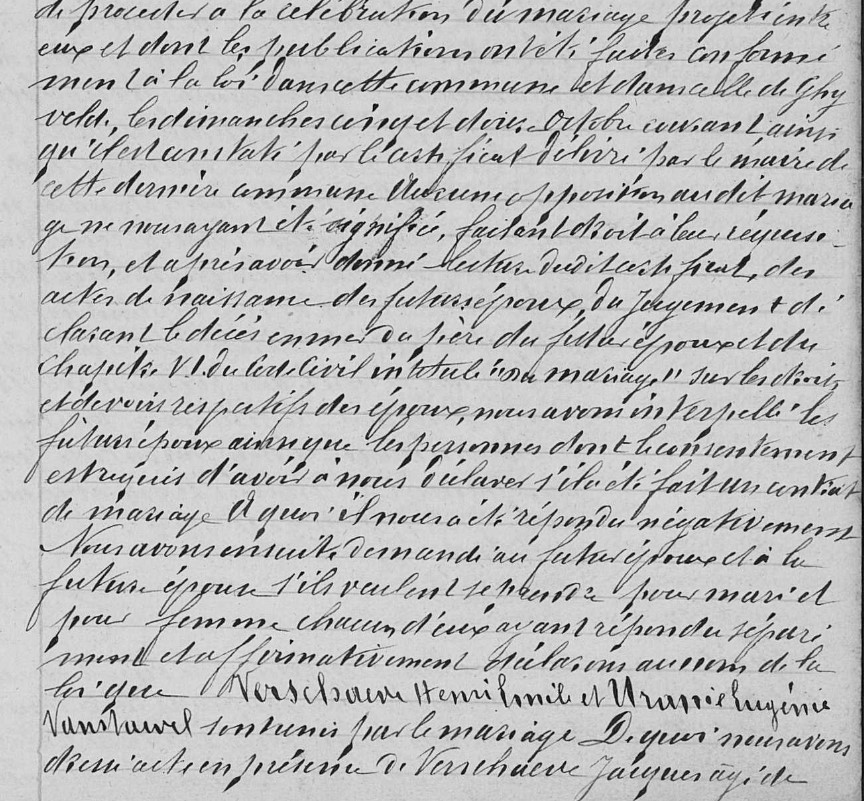 de procéder à la célébration du mariage projeté entre
eux et dont les publications ont été faites conformé
ment à la loi dans cette commune et dans celle de Ghy
velde, les dimanches cinq et douze Octobre courant ainsi
qu'il est constaté par le certificat délivré par le maire de
cette dernière commune Aucune opposition au dit maria
ge ne nous ayant été signifiée, faisant droit à leur réquisi-
tion, et après avoir donné lecture dudit certificat, des
actes de naissance des futurs époux, du Jugement dé
clarant le décès en mer du père du futur époux et du
Chapitre VI. du Code Civil intitulé "Du mariage" sur les droits
et devoirs respectifs des époux, nous avons interpellé les
futurs époux ainsi que les personnes dont le consentement
est requis d'avoir à nous déclarer s'il a été fait un contrat
de mariage A quoi il nous a été répondu négativement
Nous avons ensuite demandé au futur époux et à la
future épouse s'ils veulent se prendre pour mari et
pour femme chacun d'eux ayant répondu séparé
ment et affirmativement déclarons au nom de la
loi que Verschaeve Henri Emile et Uranie Eugénie
Vanstavel sont unis par le mariage De quoi nous avons
dressé acte en présence de Verschaeve Jacques âgé de